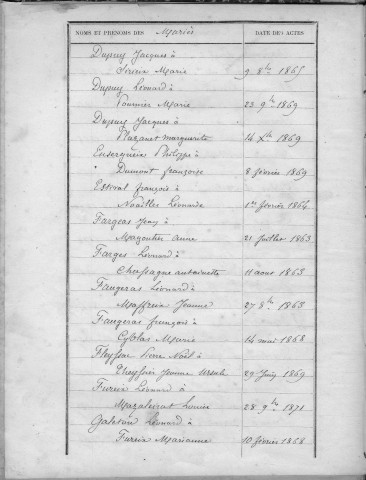 NOMS ET PRÉNOMS DES Mariés DATE DES ACTES
Dupuy Jacques à
Marie 9 8bre 1865
Dupuy Léonard à
Fournier Marie 23 9bre 1869
Dupuy Jacques à
Plazanet marguerite 14 Xbre 1869
Philippe à
Dumont françoise 8 février 1869
Estoral françois à
Noailles Léonarde 1er février 1864
Fargeas Jean à
Magontier anne 21 Juillet 1863
Farges Léonard à
Chassagne antoinette 11 aout 1863
Faugeras Léonard à
Maffreix Jeanne 27 8bre 1863
Faugeras françois à
Marie 14 mai 1868
Pierre Noël à
Jeanne Ursule 29 Juin 1869
Fureix Léonard à
Mazaleirat Louise 28 9bre 1871
Galetou Léonard à
Fureix Marianne 10 février 1868